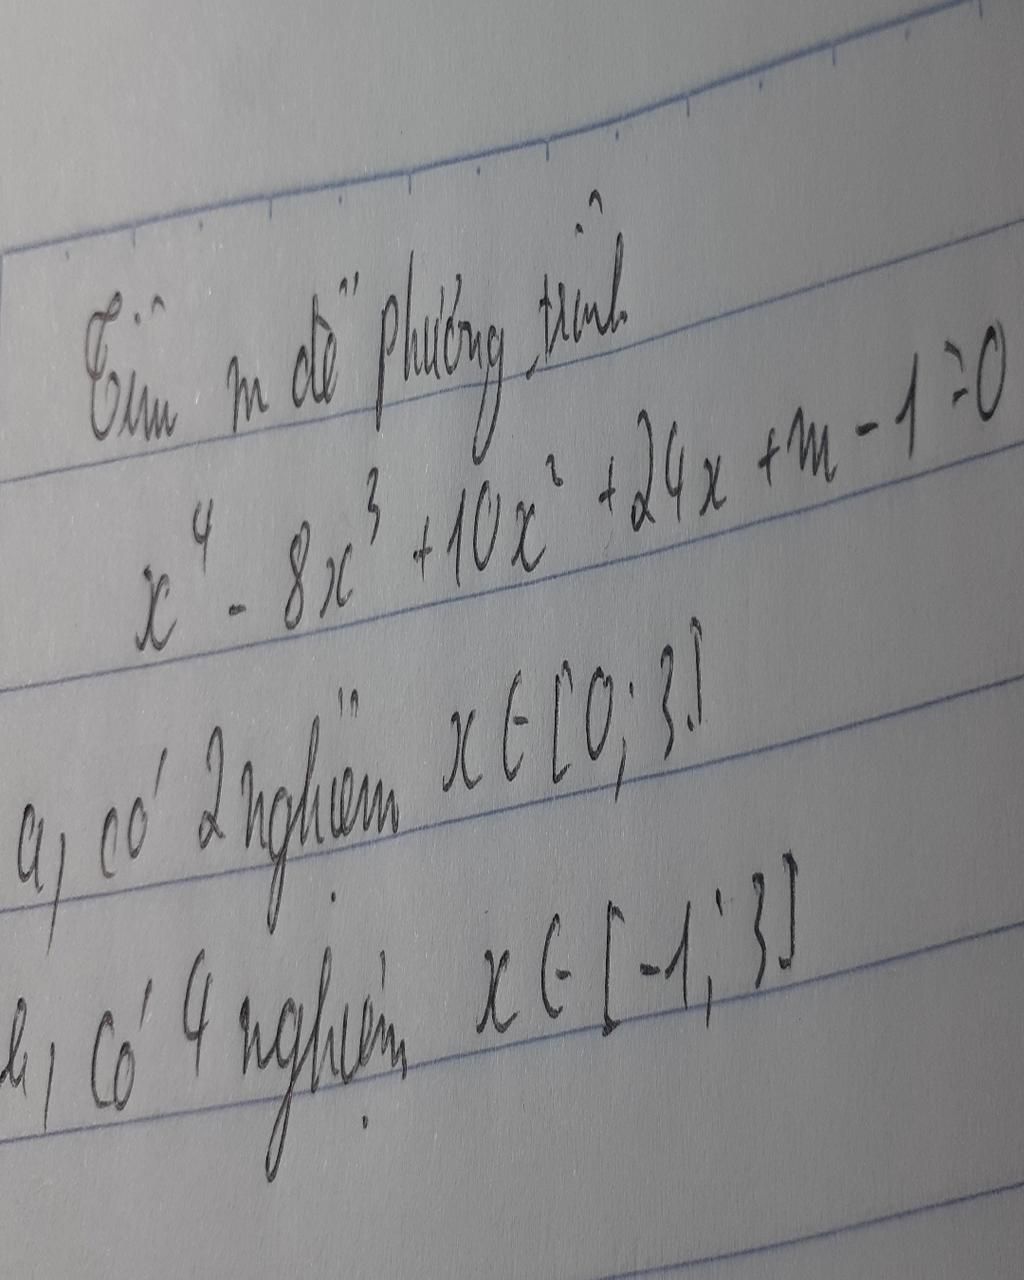 Tìm m để phương trình
x⁴ - 8x³ + 10x² + 24x + m - 1 = 0
a, có 2 nghiệm x ∈ [0; 3]
b, có 4 nghiệm x ∈ [-1; 3]